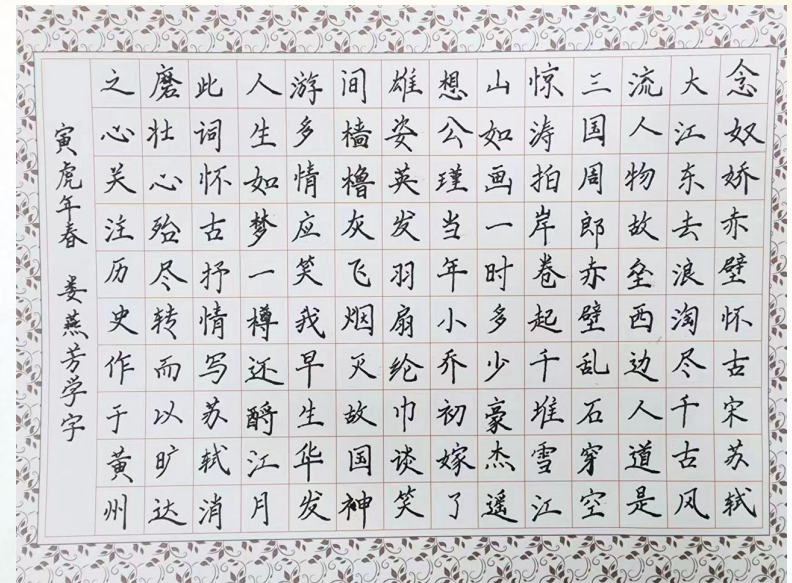 念奴娇赤壁怀古宋苏轼
大江东去浪淘尽千古风
流人物故垒西边人道是
三国周郎赤壁乱石穿空
惊涛拍岸卷起千堆雪江
山如画一时多少豪杰遥
想公瑾当年小乔初嫁了
雄姿英发羽扇纶巾谈笑
间樯橹灰飞烟灭故国神
游多情应笑我早生华发
人生如梦一樽还酹江月
此词怀古抒情写苏轼消
磨壮心殆尽转而以旷达
之心关注历史作于黄州
寅虎年春 娄燕芳学字